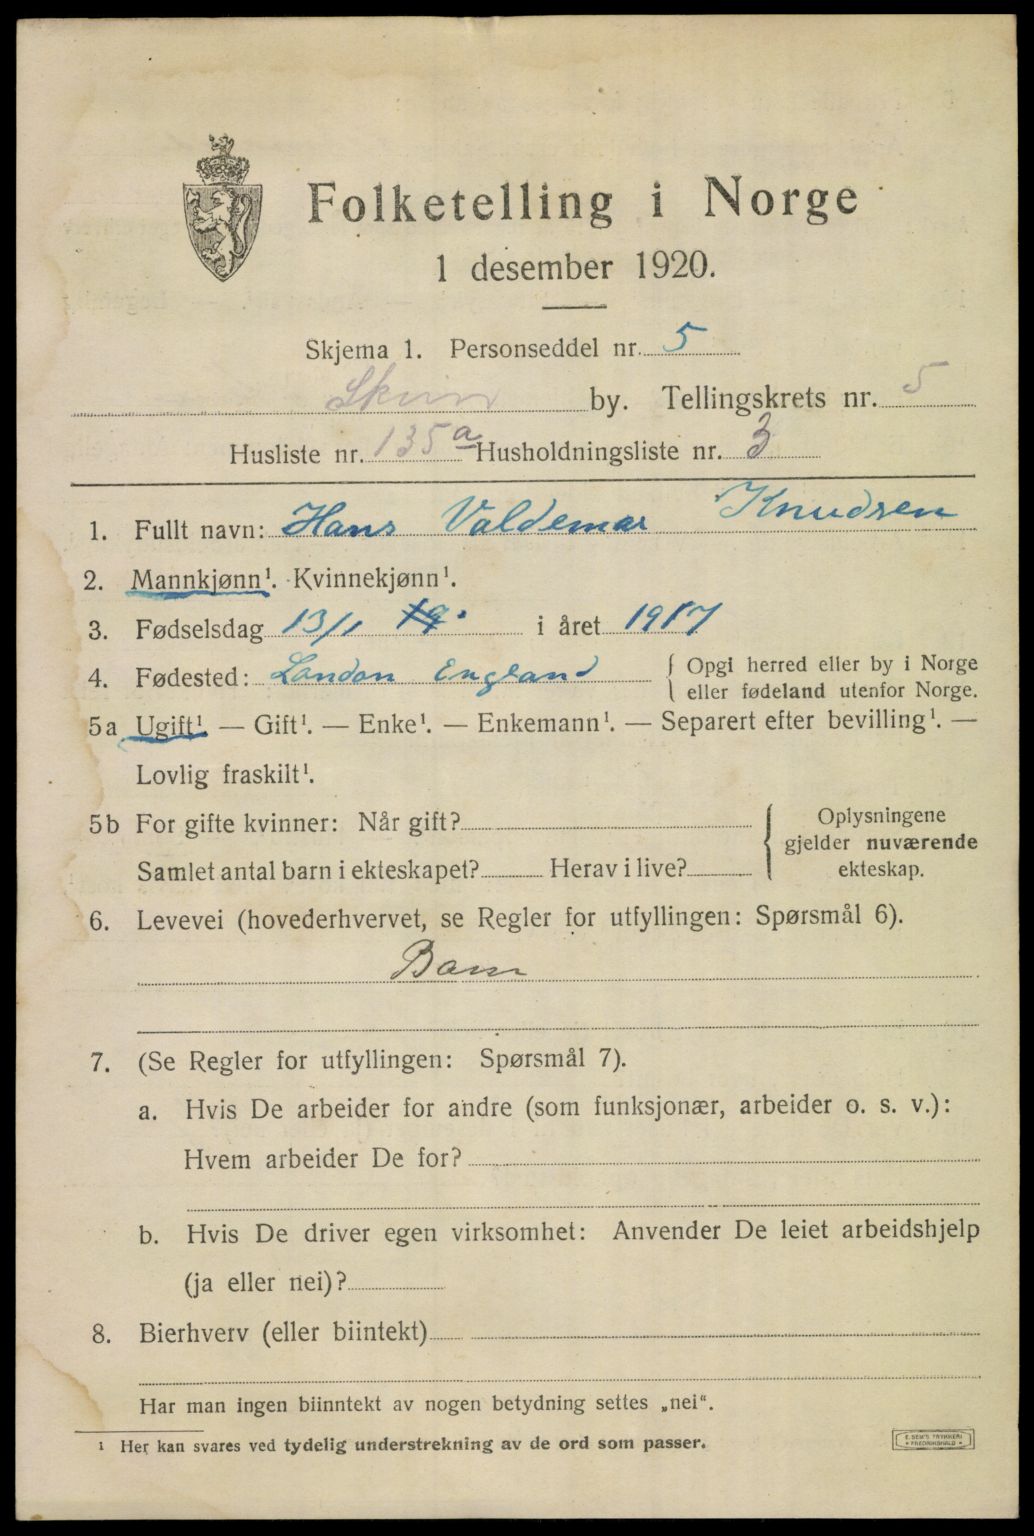 Folketelling i Norge
1 desember 1920.
Skjema 1. Personseddel nr. 5
Skien by. Tellingskrets nr. 5
Husliste nr. 135a Husholdningsliste nr. 3
1. Fullt navn: Hans Valdemar Knudsen
2. Mannkjønn¹. Kvinnekjønn¹.
3. Fødselsdag 13/1 19. i året 1917
4. Fødested: London England { Opgi herred eller by i Norge
eller fødeland utenfor Norge.
5a Ugift¹. — Gift¹. — Enke¹. — Enkemann¹. — Separert efter bevilling¹. —
Lovlig fraskilt¹.
5b For gifte kvinner: Når gift? { Oplysningene
gjelder nuværende
Samlet antal barn i ekteskapet? Herav i live? ekteskap.
6. Levevei (hovederhvervet, se Regler for utfyllingen: Spørsmål 6).
Barn
7. (Se Regler for utfyllingen: Spørsmål 7).
a. Hvis De arbeider for andre (som funksjonær, arbeider o. s. v.):
Hvem arbeider De for?
b. Hvis De driver egen virksomhet: Anvender De leiet arbeidshjelp
(ja eller nei)?
8. Bierhverv (eller biintekt)
Har man ingen biinntekt av nogen betydning settes „nei“.
¹ Her kan svares ved tydelig understrekning av de ord som passer.
E. SEM'S TRYKKERI
• FREDRIKSHALD •